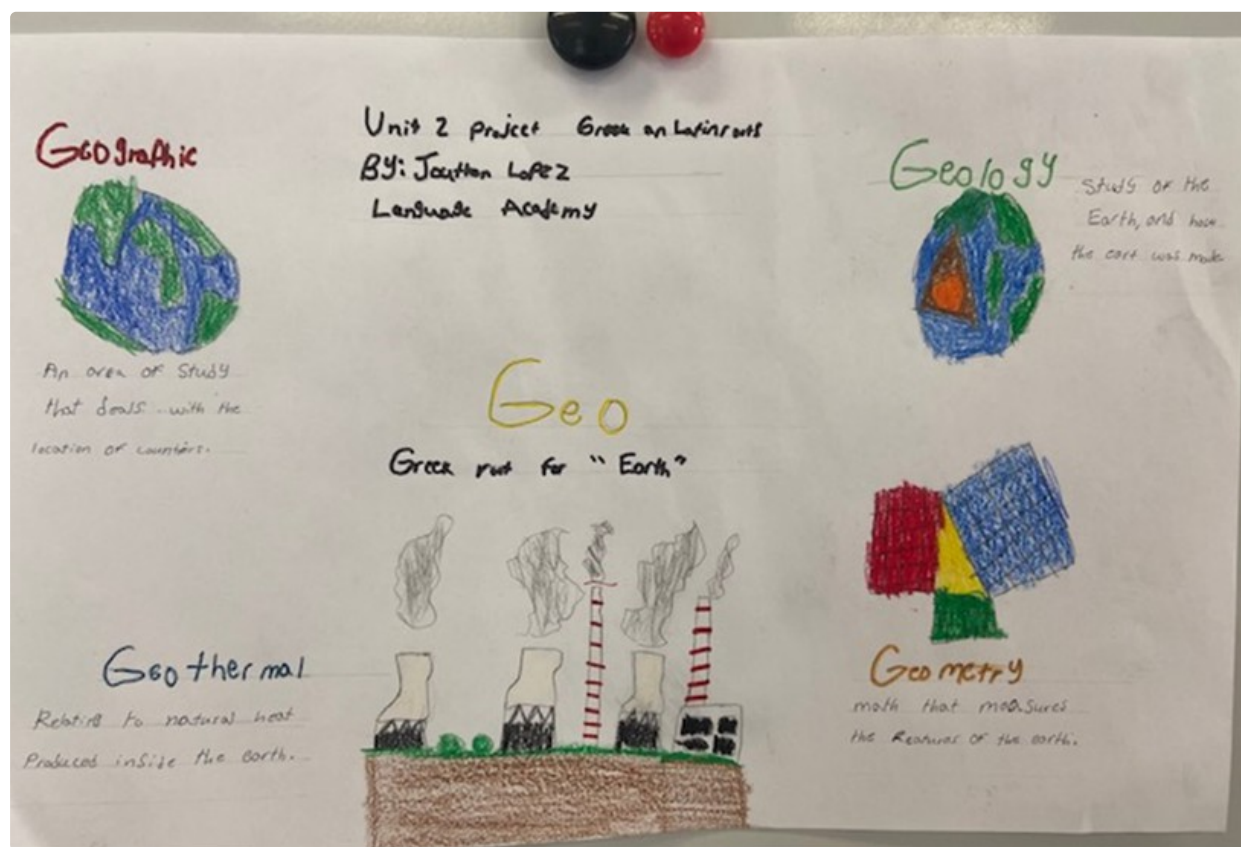 Unit 2 Project Greek an Latin roots
BY: Lopez
Language Academy
Geographic
An area of study
that deals with the
location of
Geology
Study of the
Earth, and how
the eart was made
Geo
Greek root for "Earth"
Geothermal
Relating to natural heat
Produced inside the earth.
Geometry
math that measures
the Features of the earth.